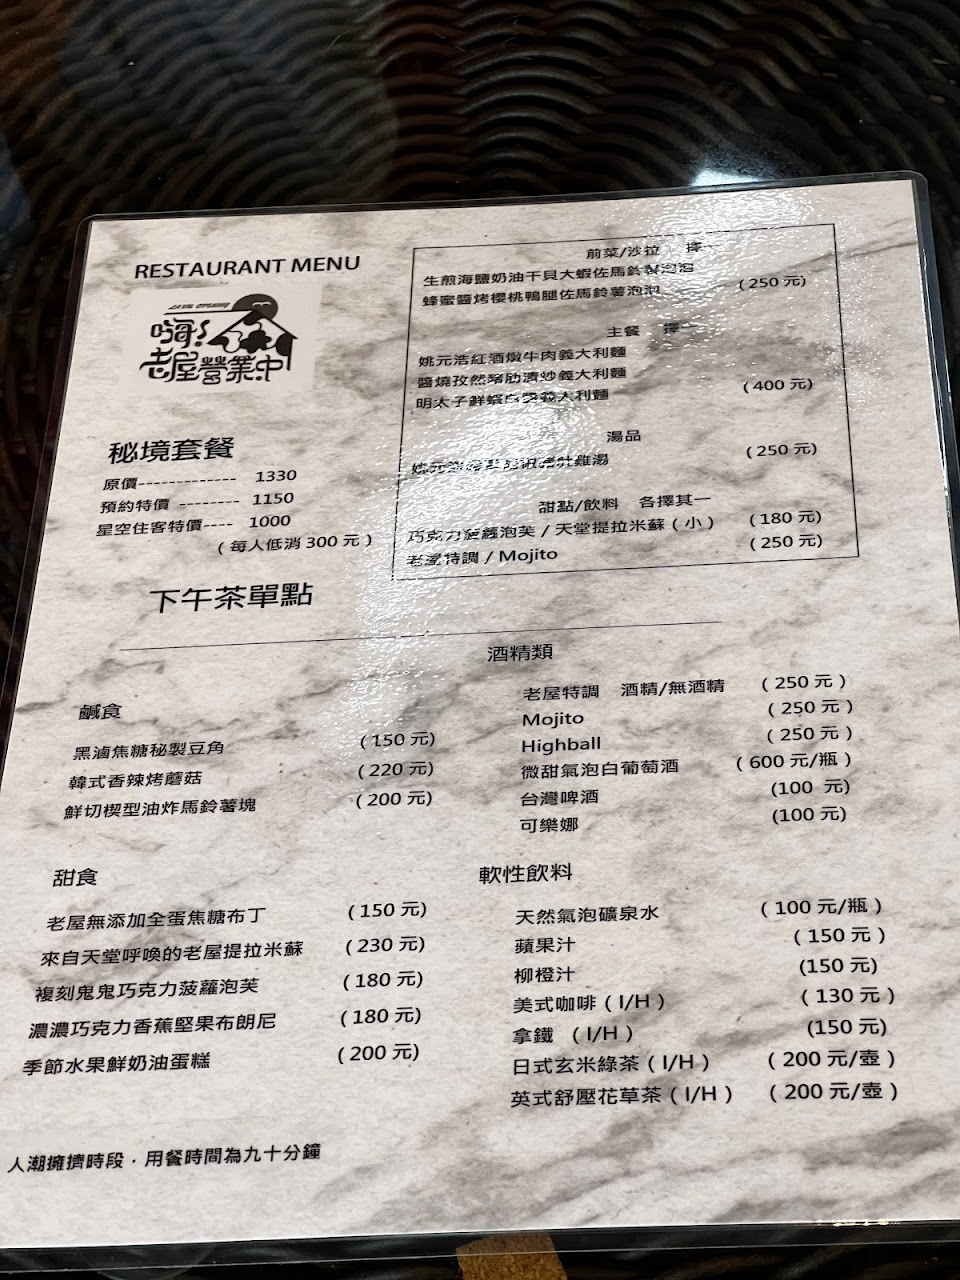 RESTAURANT MENU
嗨!
老屋營業中
秘境套餐
原價------------- 1330
預約特價 -------- 1150
星空住客特價---- 1000
( 每人低消 300 元 )
前菜/沙拉 擇一
生煎海鹽奶油干貝大蝦佐馬鈴薯泡泡
蜂蜜醬烤櫻桃鴨腿佐馬鈴薯泡泡 ( 250 元)
主餐 擇一
姚元浩紅酒燉牛肉義大利麵
醬燒孜然豬肋清炒義大利麵
明太子鮮蝦白醬義大利麵 ( 400 元)
湯品
雞湯 ( 250 元)
甜點/飲料 各擇其一
巧克力菠蘿泡芙 / 天堂提拉米蘇 ( 小 ) ( 180 元)
老屋特調 / Mojito ( 250 元)
下午茶單點
鹹食
黑滷焦糖秘製豆角 ( 150 元)
韓式香辣烤蘑菇 ( 220 元)
鮮切楔型油炸馬鈴薯塊 ( 200 元)
甜食
老屋無添加全蛋焦糖布丁 ( 150 元)
來自天堂呼喚的老屋提拉米蘇 ( 230 元)
複刻鬼鬼巧克力菠蘿泡芙 ( 180 元)
濃濃巧克力香蕉堅果布朗尼 ( 180 元)
季節水果鮮奶油蛋糕 ( 200 元)
酒精類
老屋特調 酒精/無酒精 ( 250 元 )
Mojito ( 250 元 )
Highball ( 250 元 )
微甜氣泡白葡萄酒 ( 600 元/瓶 )
台灣啤酒 (100 元)
可樂娜 (100 元)
軟性飲料
天然氣泡礦泉水 ( 100 元/瓶 )
蘋果汁 ( 150 元 )
柳橙汁 (150 元)
美式咖啡 ( I/H ) ( 130 元 )
拿鐵 ( I/H ) (150 元)
日式玄米綠茶 ( I/H ) ( 200 元/壺 )
英式舒壓花草茶 ( I/H ) ( 200 元/壺 )
人潮擁擠時段，用餐時間為九十分鐘